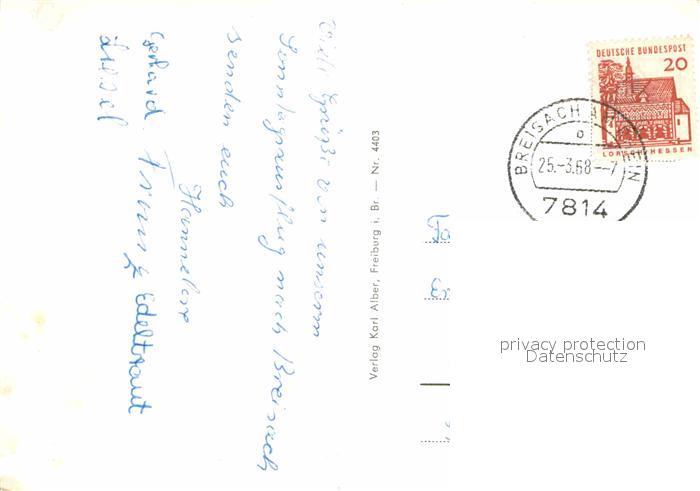 Viele Grüße von unserem
Sonntagsausflug nach Breisach
senden euch
Hannelore
Franz Edeltraut
Gerhard
Verlag Karl Alber, Freiburg i. Br. — Nr. 4403
DEUTSCHE BUNDESPOST
20
LORSCH/HESSEN
BREISACH AM RHEIN
25.-3.68--7
7814
privacy protection
Datenschutz